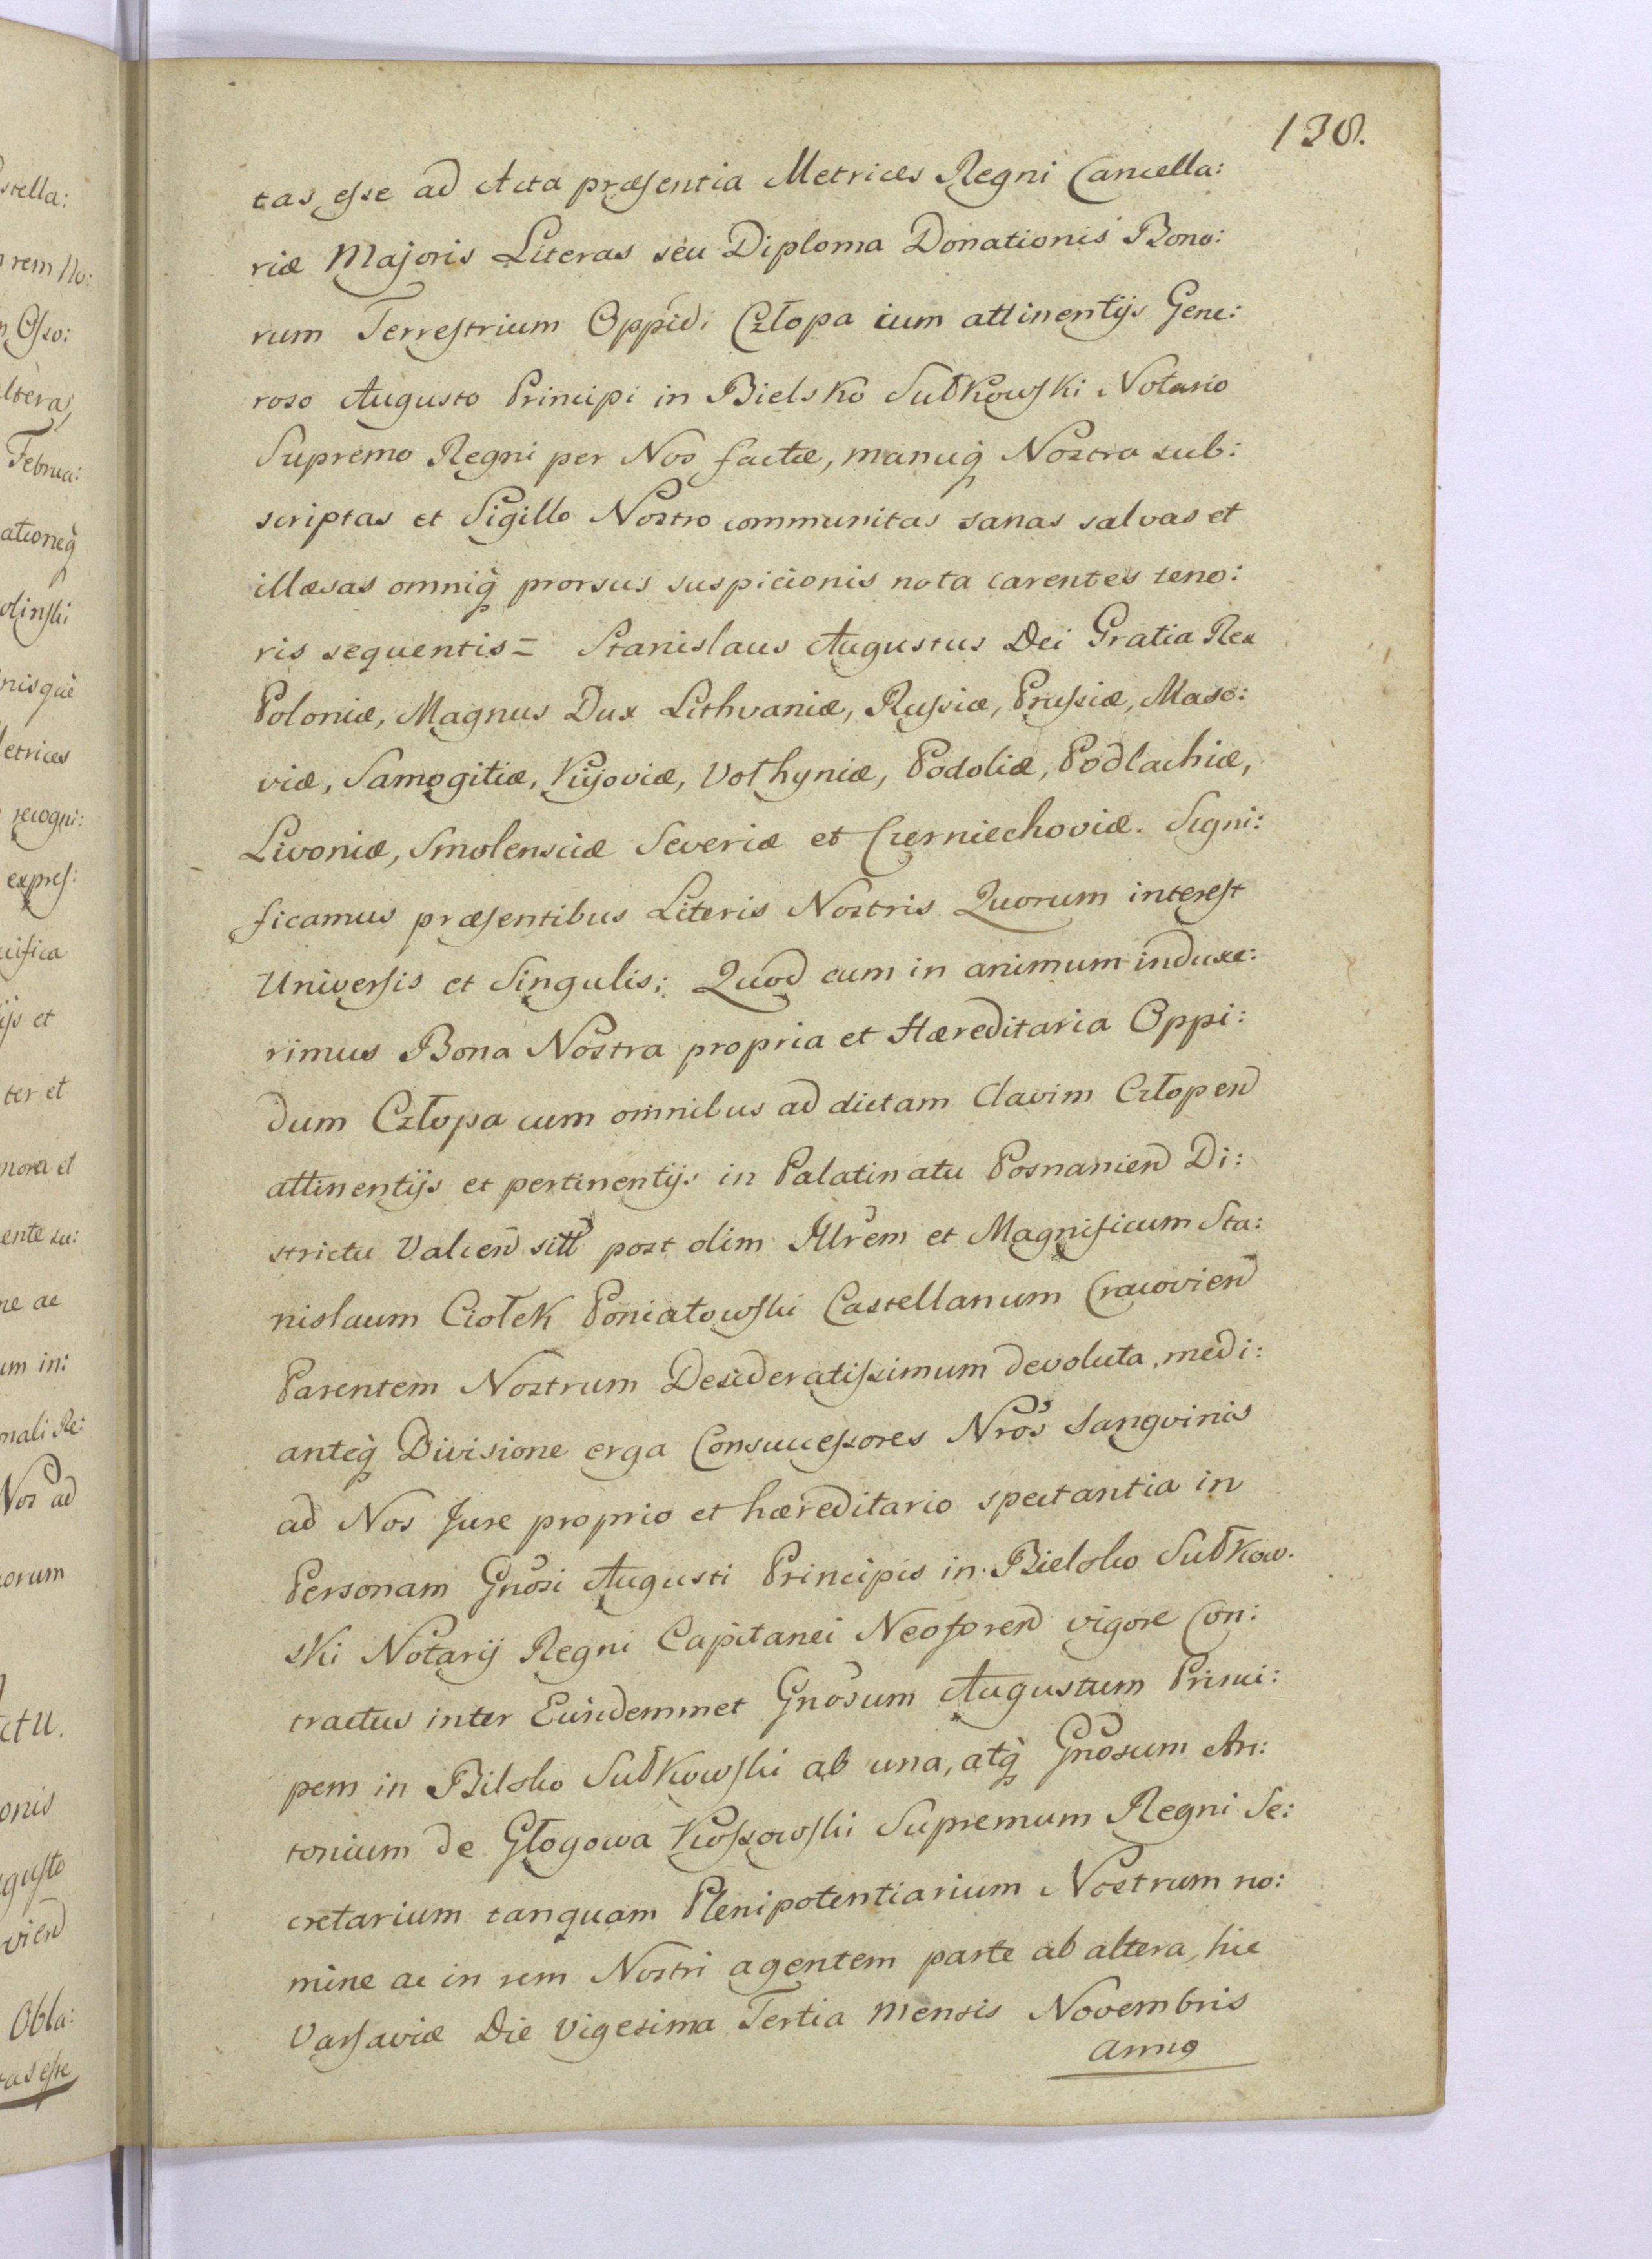 138.
tas esse ad Acta præsentia Metrices Regni Cancella:
riæ Majoris Literas seu Diploma Donationis Bono:
rum Terrestrium Oppidi Człopa cum attinentijs Gene:
roso Augusto Principi in Bielsko Sułkowski Notario
Supremo Regni per Nos factæ, manuq̀ Nostra sub:
scriptas et Sigillo Nostro communitas sanas salvas et
illæsas omniq̀ prorsus suspicionis nota carentes teno:
ris sequentis = Stanislaus Augustus Dei Gratia Rex
Poloniæ, Magnus Dux Lithvaniæ, Russiæ, Prussiæ, Maso:
viæ, Samogitiæ, Kijoviæ, Vołhyniæ, Podoliæ, Podlachiæ,
Livoniæ, Smolensciæ Severiæ et Czerniechoviæ. Signi:
ficamus præsentibus Literis Nostris Quorum interest
Universis et Singulis; Quod cum in animum induxe:
rimus Bona Nostra propria et Hæreditaria Oppi:
dum Człopa cum omnibus ad dictam Clavim Człopen̄
attinentijs et pertinentijs in Palatinatu Posnanien̄ Di:
strictu Valcen̄ sitt post olim Illr̄em et Magnificum Sta:
nislaum Ciołek Poniatowski Castellanum Cracovien̄
Parentem Nostrum Desideratissimum devoluta, medi:
anteq̀ Divisione erga Consuccessores Nr̄os Sangvinis
ad Nos Jure proprio et hæreditario spectantia in
Personam Gn̄osi Augusti Principis in Bielsko Sułkow.
ski Notarij Regni Capitanei Neoforen̄ vigore Con:
tractus inter Eundemmet Gn̄osum Augustum Princi:
pem in Bilsko Sułkowski ab una, atq̀ Gn̄osum An:
tonium de Głogowa Kossowski Supremum Regni Se:
cretarium tanquam Plenipotentiarium Nostrum no:
mine ac in rem Nostri agentem parte ab altera, hic
Varsaviæ Die Vigesima Tertia Mensis Novembris
Anno